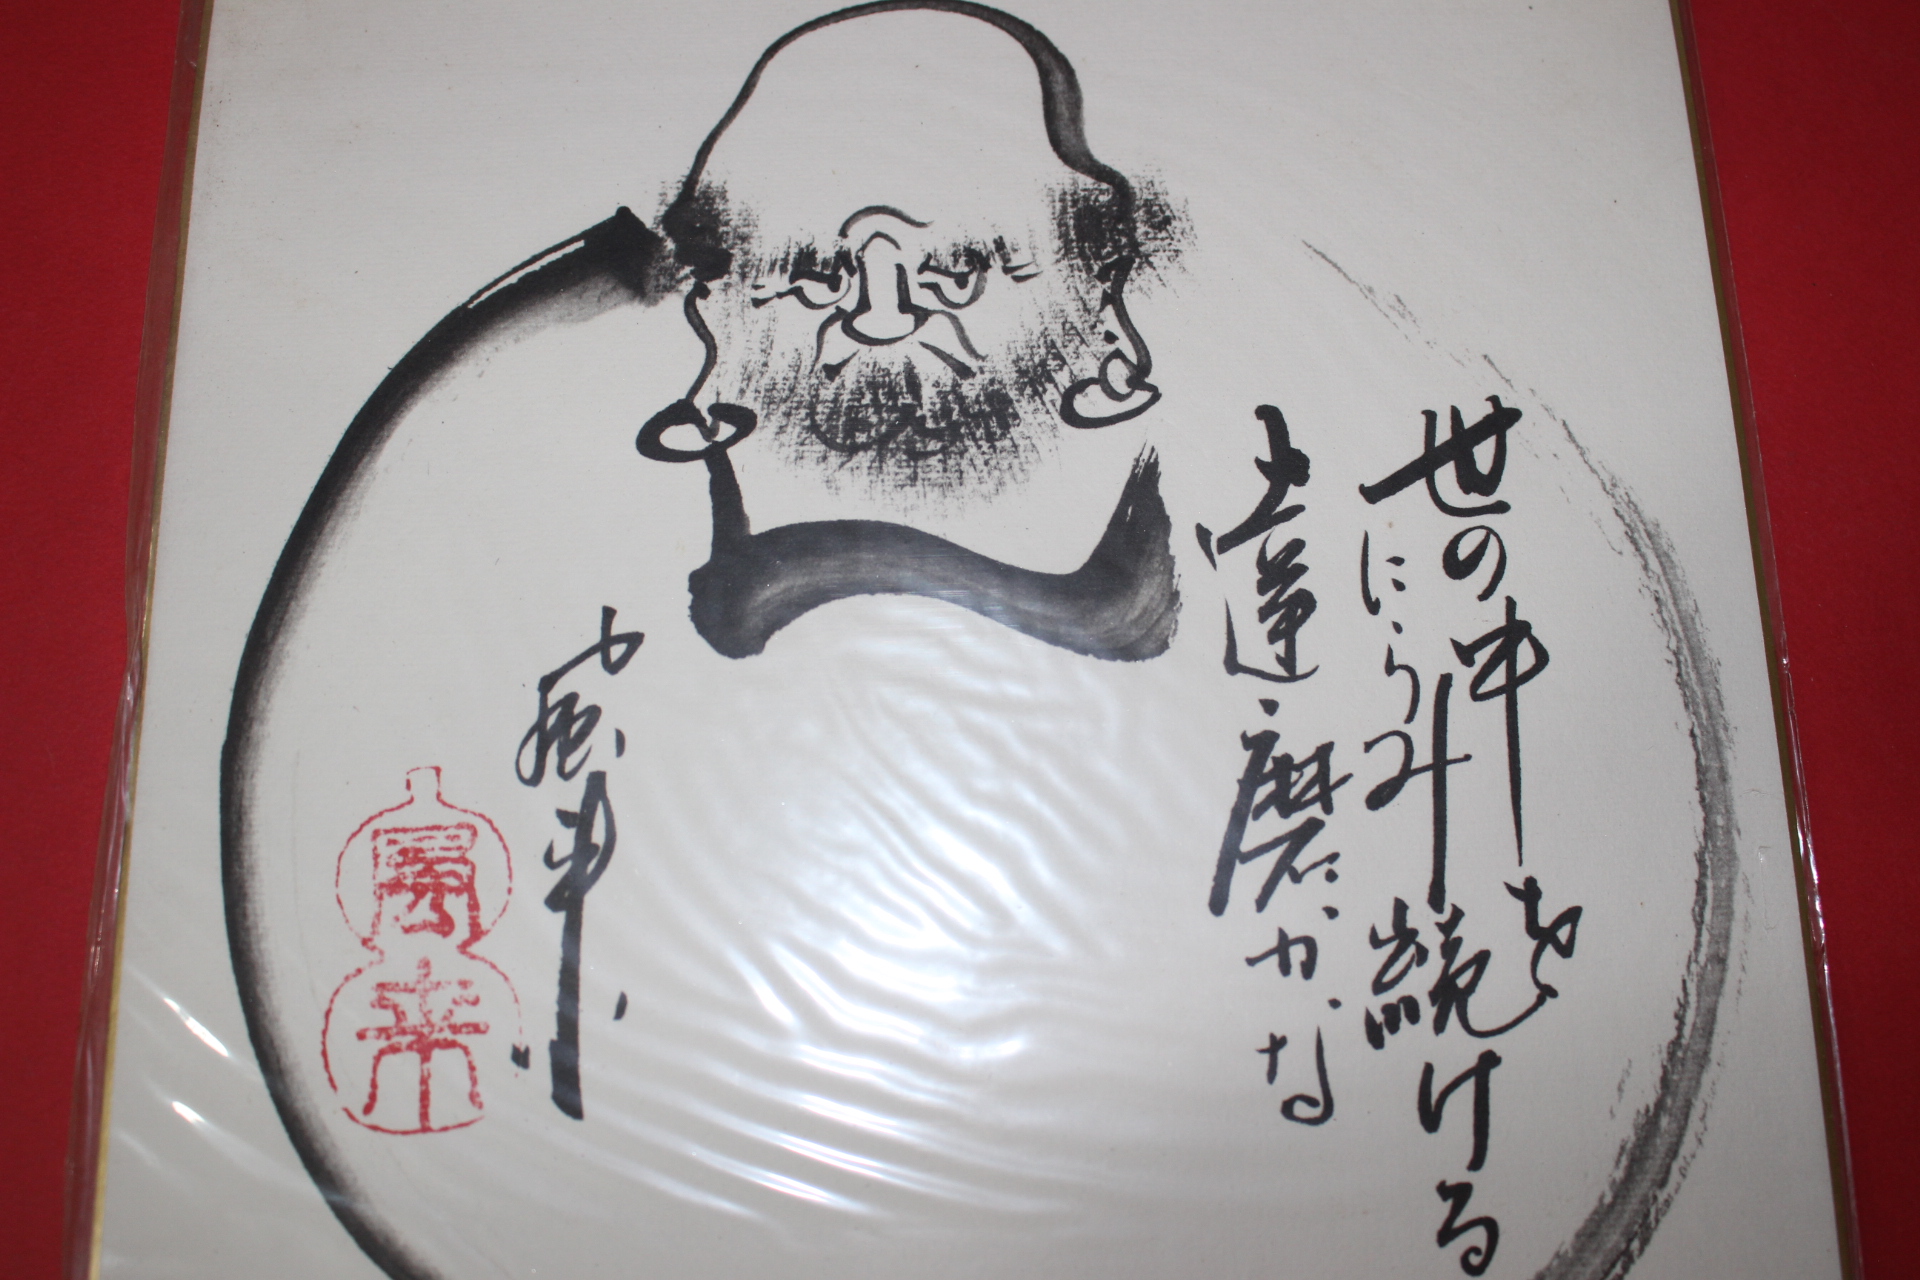 世の中を
にらみ続ける
土達磨かな
風来